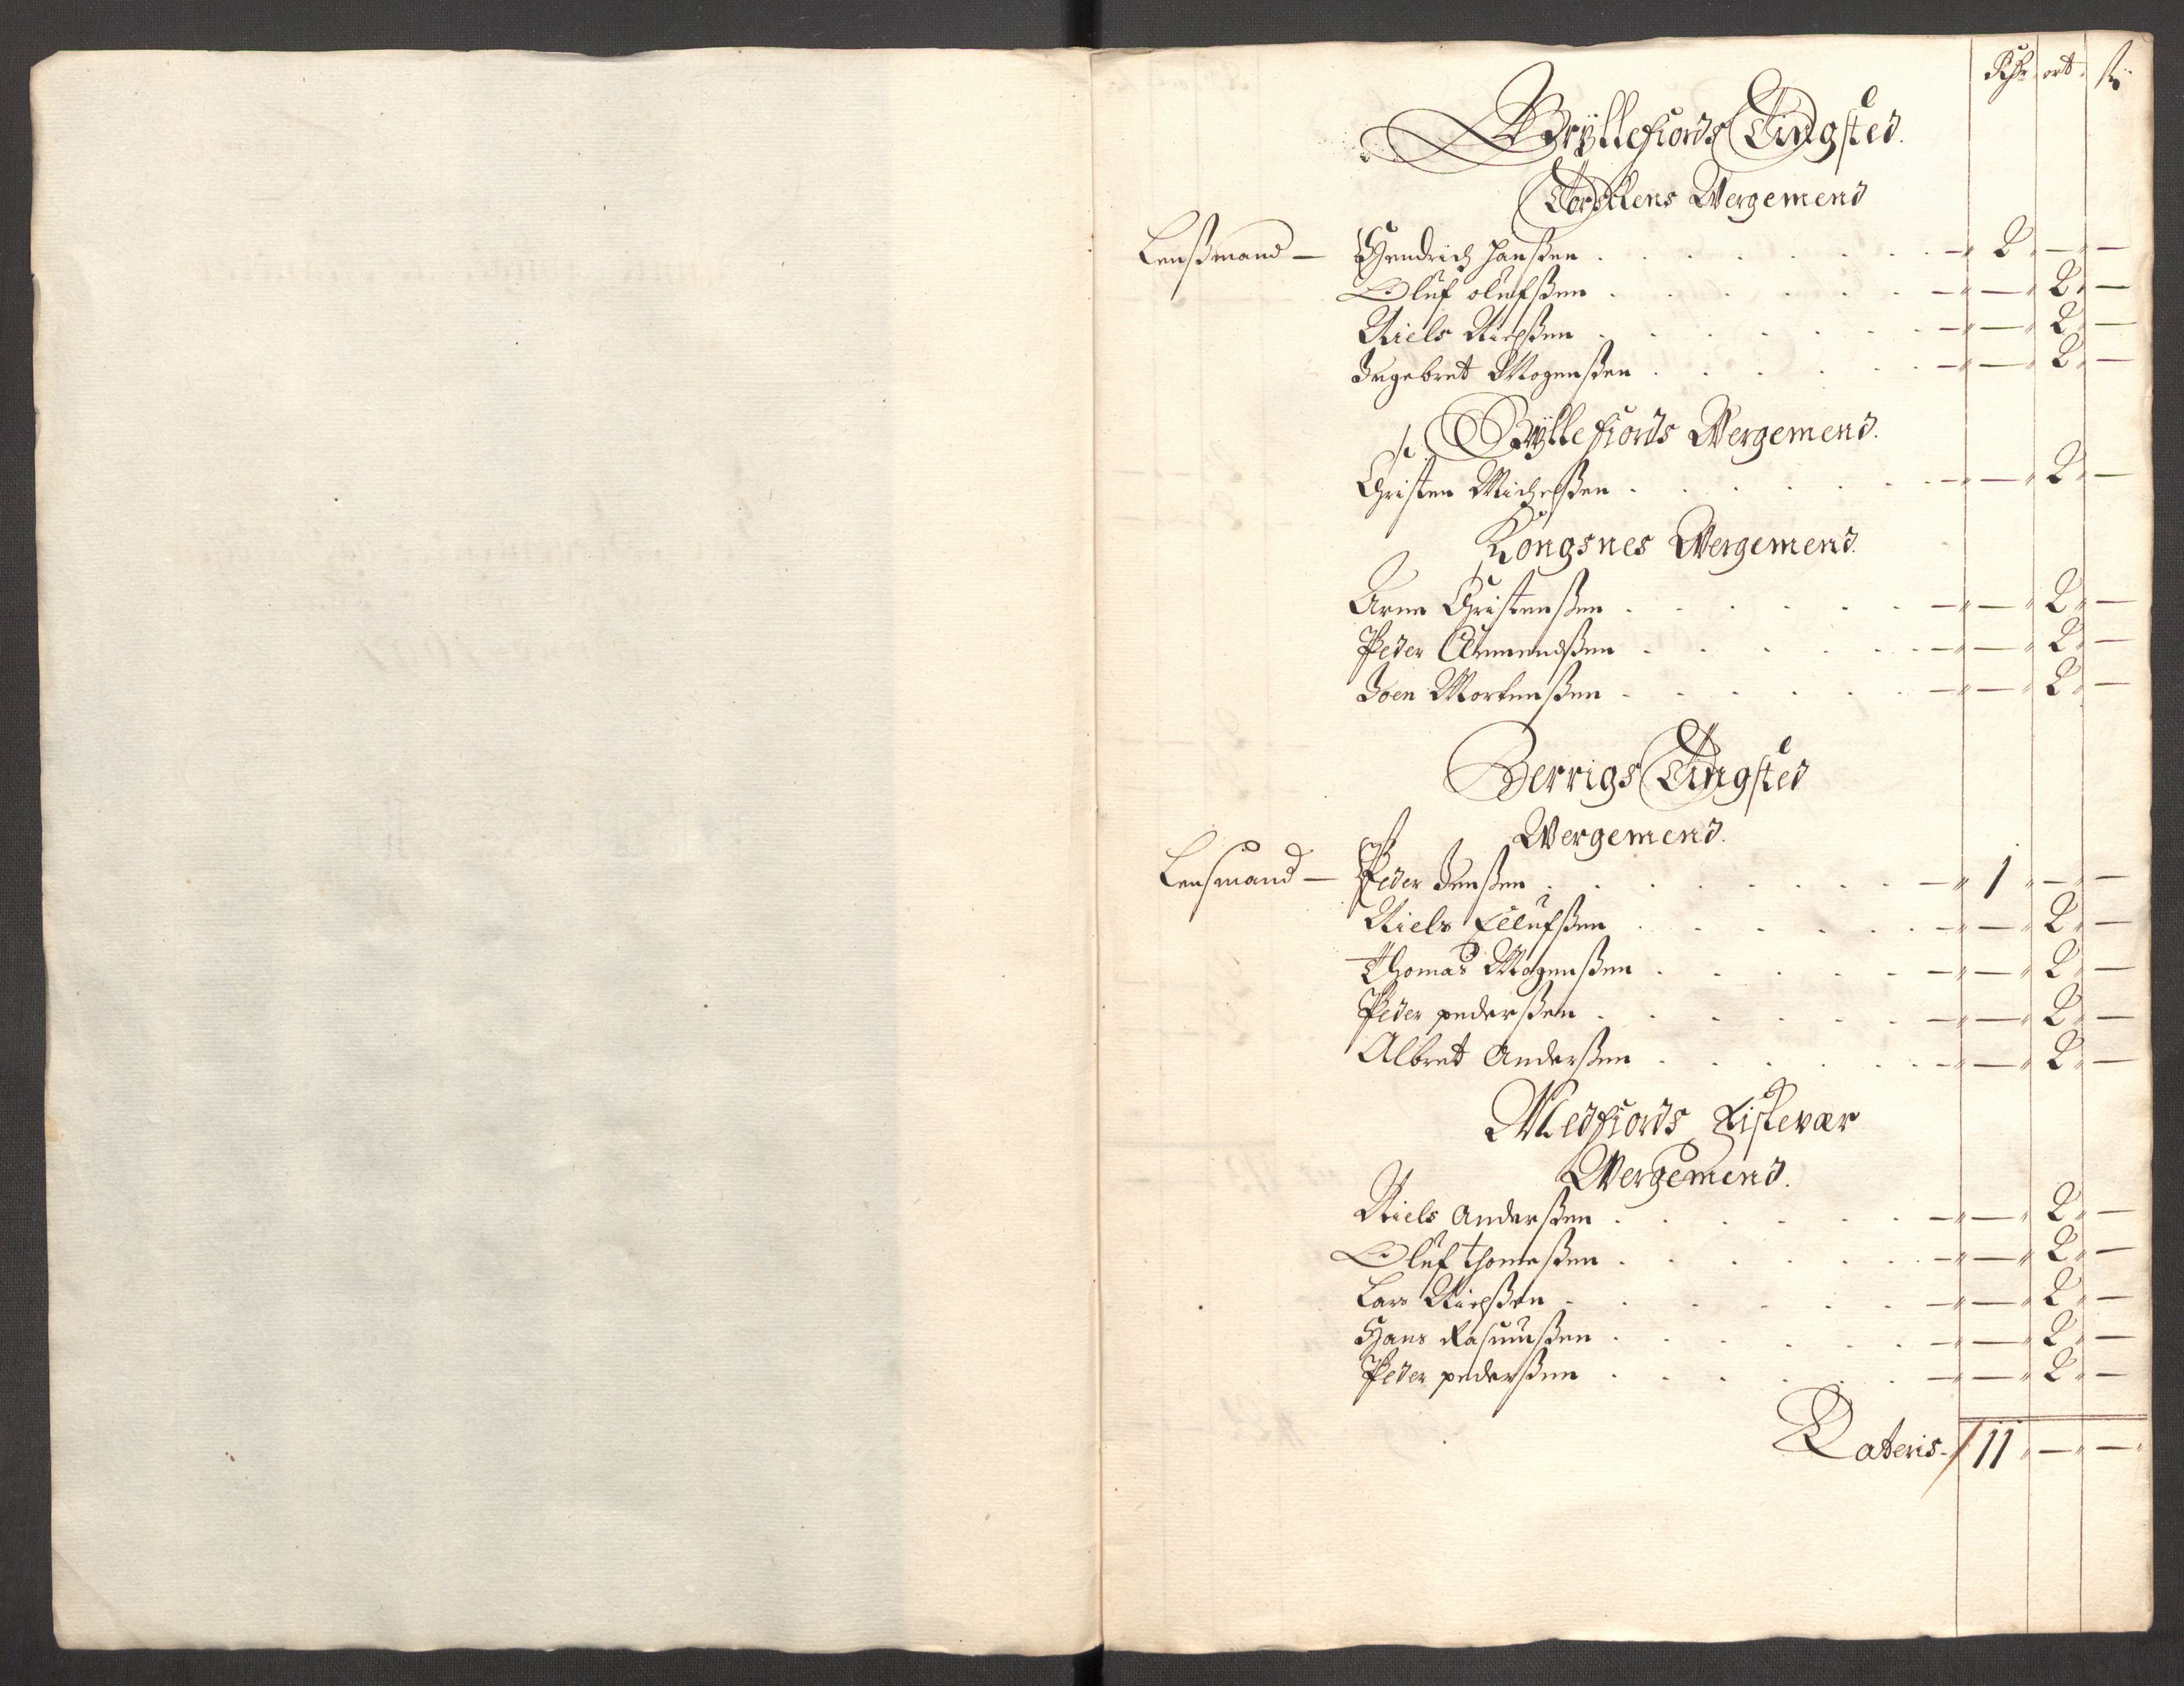 Rhr ort ß
Gryllefiords Tingsted.
Torschens Wergemend
Lensmand — Hendrich Hanssen . . . . . . . — 2 — —
Oluf olufssen . . . . . . — — 2 —
Niels Nielssen . . . . . . — — 2 —
Ingebret Mogenssen . . . . . — — 2 —
Gryllefiords Wergemend.
Christen Michelssen . . . . . . — — 2 —
Kongsnes Wergemend.
Arne Christenssen . . . . . . — — 2 —
Peder Ammendssen . . . . . — — 2 —
Joen Mortenssen . . . . . . — — 2 —
Berrigs Tingsted
Wergemend.
Lensmand — Peder Jenssen . . . . . . . — 1 — —
Niels Ellufssen . . . . . . — — 2 —
Thomas Mogenssen . . . . . — — 2 —
Peder pederssen . . . . . . — — 2 —
Albret Anderssen . . . . . . — — 2 —
Medfiords Fiskevær
Wergemend.
Niels Anderssen . . . . . . — — 2 —
Oluf thomessen . . . . . . — — 2 —
Lars Nielssen . . . . . . — — 2 —
Hans Rasmussen . . . . . . — — 2 —
Peder pederssen . . . . . . — — 2 —
Lateris — 11 — —